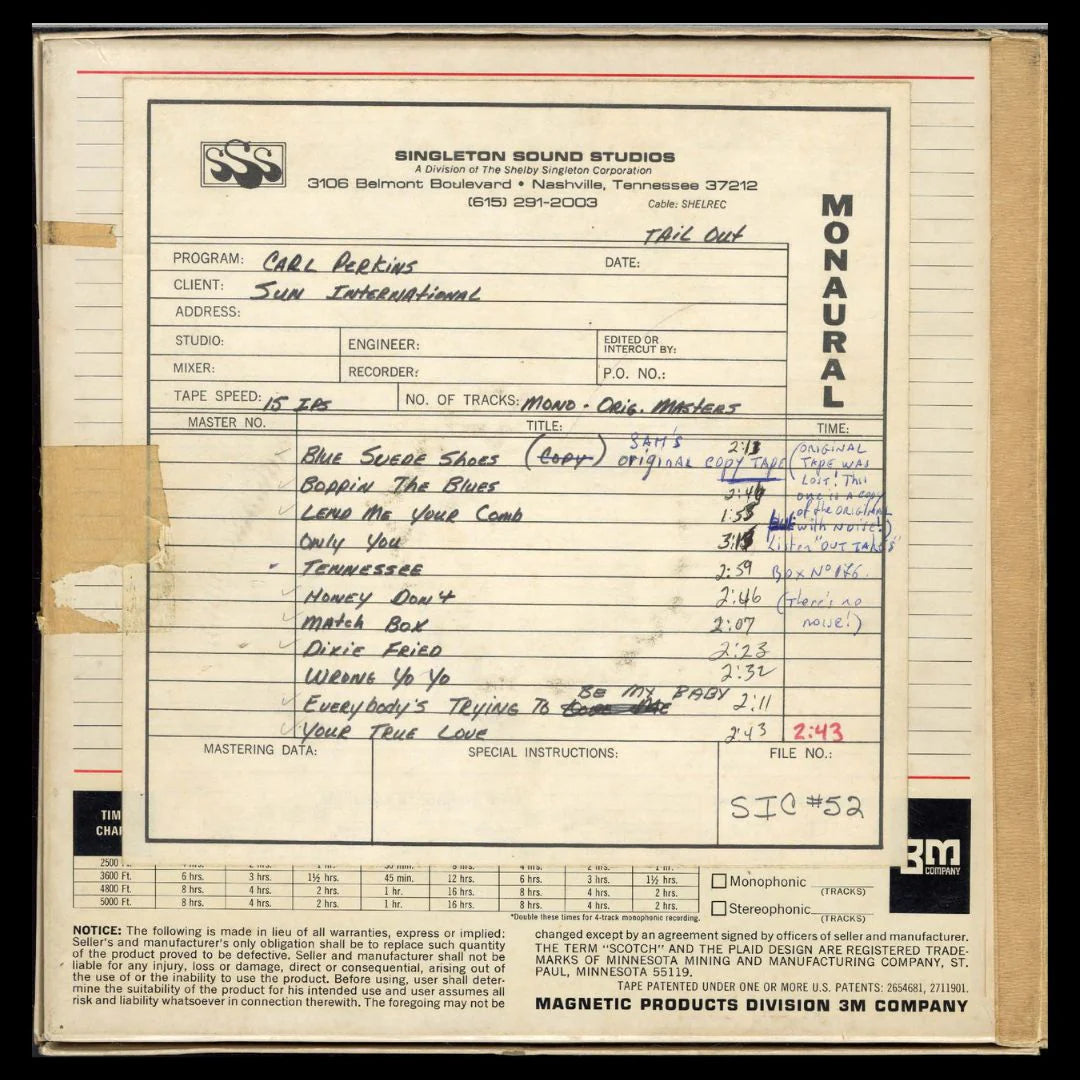 SSS
SINGLETON SOUND STUDIOS
A Division of The Shelby Singleton Corporation
3106 Belmont Boulevard • Nashville, Tennessee 37212
(615) 291-2003 Cable: SHELREC
MONAURAL
TAIL OUT
PROGRAM: CARL PERKINS DATE:
CLIENT: SUN INTERNATIONAL
ADDRESS:
STUDIO: ENGINEER: EDITED OR INTERCUT BY:
MIXER: RECORDER: P.O. NO.:
TAPE SPEED: 15 IPS NO. OF TRACKS: MONO - ORIG. MASTERS
MASTER NO. TITLE: TIME:
BLUE SUEDE SHOES (COPY) SAM'S original COPY TAPE 2:13
(ORIGINAL
TAPE WAS
LOST! This
one is a copy
of the ORIGINAL
with NOISE!)
Listen "OUT TAKES"
BOX Nº 146.
(there's no
noise!)
BOPPIN THE BLUES
LEND ME YOUR COMB 1:53
ONLY YOU
TENNESSEE 2:59
HONEY DON'T 2:46
MATCH BOX 2:07
DIXIE FRIED 2:23
WRONG YO YO 2:32
EVERYBODY'S TRYING TO BE MY BABY 2:11
YOUR TRUE LOVE 2:43 2:43
MASTERING DATA: SPECIAL INSTRUCTIONS: FILE NO.:
SIC #52
TIM
CHAR
2500
3600 Ft. 6 hrs. 3 hrs. 1½ hrs. 45 min. 12 hrs. 6 hrs. 3 hrs. 1½ hrs.
4800 Ft. 8 hrs. 4 hrs. 2 hrs. 1 hr. 16 hrs. 8 hrs. 4 hrs. 2 hrs.
5000 Ft. 8 hrs. 4 hrs. 2 hrs. 1 hr. 16 hrs. 8 hrs. 4 hrs. 2 hrs.
*Double these times for 4-track monophonic recording.
Monophonic (TRACKS)
Stereophonic (TRACKS)
3M
COMPANY
NOTICE: The following is made in lieu of all warranties, express or implied:
Seller's and manufacturer's only obligation shall be to replace such quantity
of the product proved to be defective. Seller and manufacturer shall not be
liable for any injury, loss or damage, direct or consequential, arising out of
the use of or the inability to use the product. Before using, user shall deter-
mine the suitability of the product for his intended use and user assumes all
risk and liability whatsoever in connection therewith. The foregoing may not be
changed except by an agreement signed by officers of seller and manufacturer.
THE TERM "SCOTCH" AND THE PLAID DESIGN ARE REGISTERED TRADE-
MARKS OF MINNESOTA MINING AND MANUFACTURING COMPANY, ST.
PAUL, MINNESOTA 55119.
TAPE PATENTED UNDER ONE OR MORE U.S. PATENTS: 2654681, 2711901.
MAGNETIC PRODUCTS DIVISION 3M COMPANY